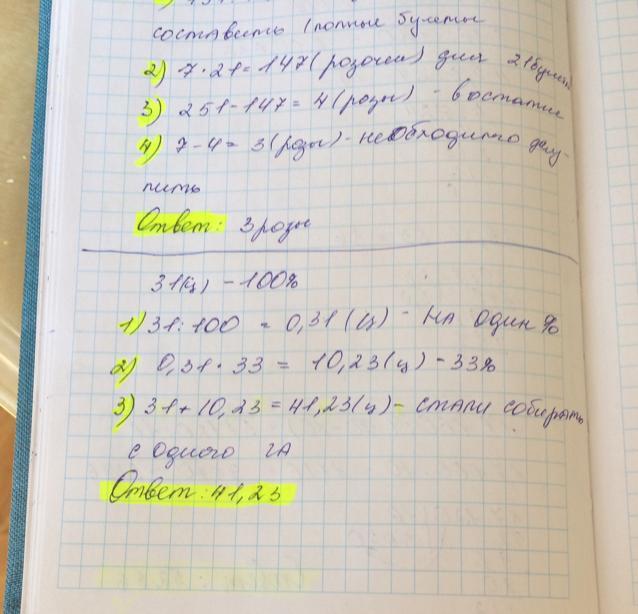 составить (полные букеты
2) 7·21=147(розочек) для 21 букета
3) 151-147=4(розы) - в остатке
4) 7-4=3(розы)-необходимо доку-
пить
Ответ: 3 розы
31(ц) - 100%
1) 31:100 = 0,31 (ц) - на один %
2) 0,31·33 = 10,23(ц) - 33%
3) 31+10,23=41,23(ц)- стали собирать
с одного га
Ответ: 41,23